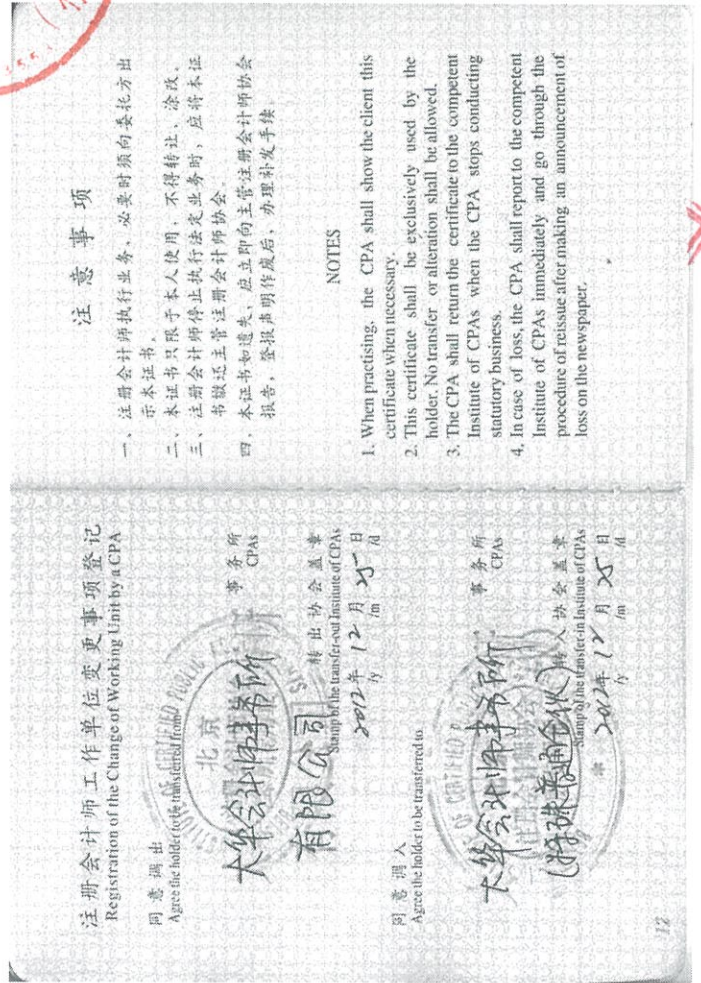 注册会计师工作单位变更事项登记
Registration of the Change of Working Unit by a CPA
同意调出
Agree the holder to be transferred from
北京
大华会计师事务所
有限公司
事务所
CPAs
转出协会盖章
Stamp of the transfer-out Institute of CPAs
2012年 12月 25日
/y /m /d
同意调入
Agree the holder to be transferred to
大华会计师事务所
(特殊普通合伙)
事务所
CPAs
转入协会盖章
Stamp of the transfer-in Institute of CPAs
2012年 12月 25日
/y /m /d
12
注意事项
一、注册会计师执行业务,必要时须向委托方出
示本证书。
二、本证书只限于本人使用,不得转让、涂改。
三、注册会计师停止执行法定业务时,应将本证
书缴还主管注册会计师协会。
四、本证书如遗失,应立即向主管注册会计师协会
报告,登报声明作废后,办理补发手续。
NOTES
1. When practising, the CPA shall show the client this
certificate when necessary.
2. This certificate shall be exclusively used by the
holder. No transfer or alteration shall be allowed.
3. The CPA shall return the certificate to the competent
Institute of CPAs when the CPA stops conducting
statutory business.
4. In case of loss, the CPA shall report to the competent
Institute of CPAs immediately and go through the
procedure of reissue after making an announcement of
loss on the newspaper.